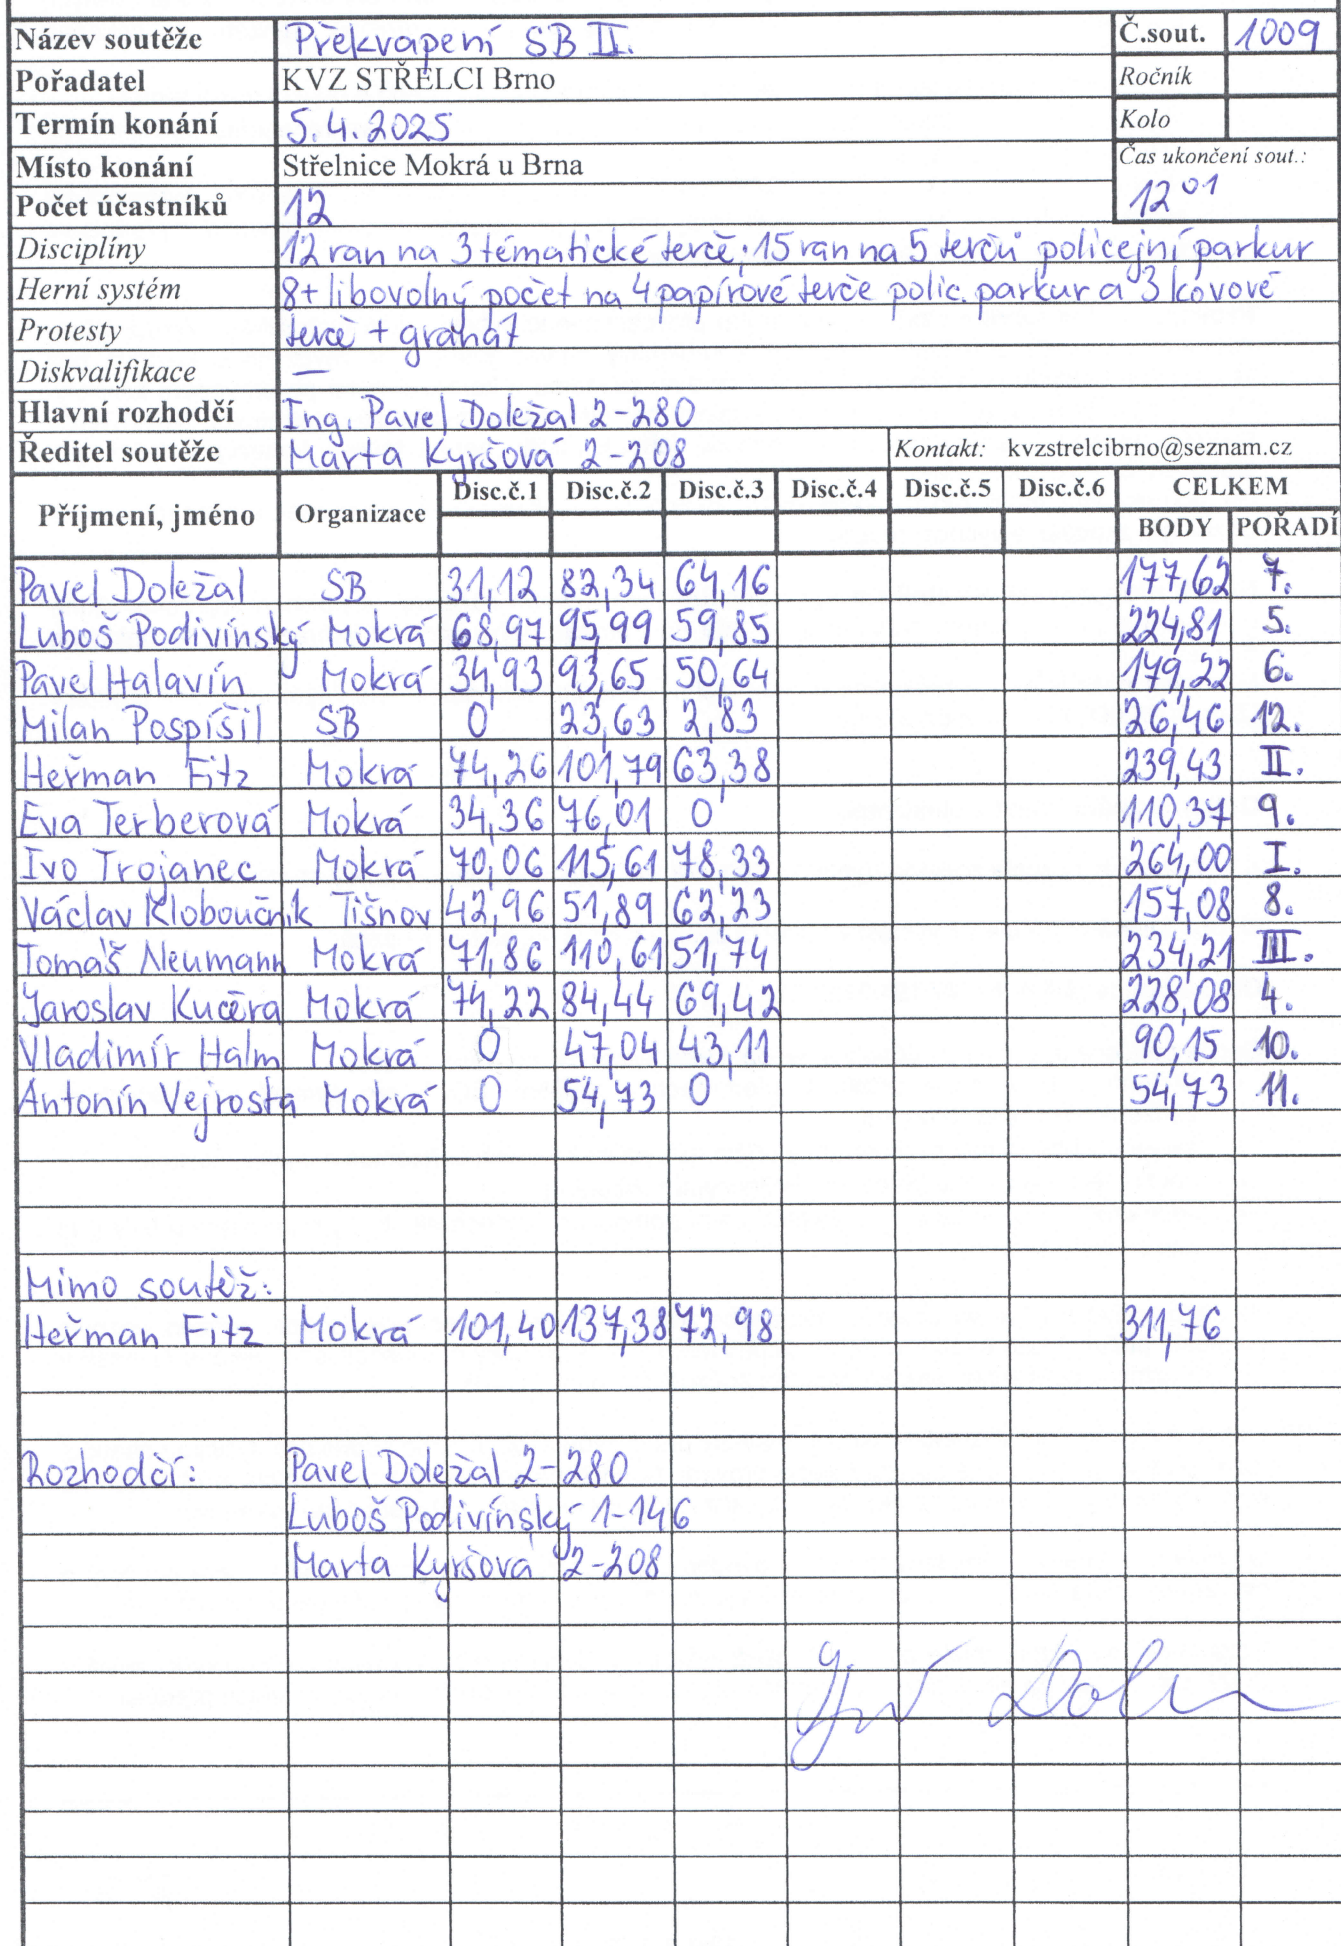 Název soutěže Překvapení SB II. Č.sout. 1009
Pořadatel KVZ STŘELCI Brno Ročník
Termín konání 5.4.2025 Kolo
Místo konání Střelnice Mokrá u Brna Čas ukončení sout.:
Počet účastníků 12 12 01
Disciplíny 12 ran na 3 tématické terče; 15 ran na 5 terčů policejní parkur
Herní systém 8+ libovolný počet na 4 papírové terče polic. parkur a 3 kovové
Protesty terče + granát
Diskvalifikace —
Hlavní rozhodčí Ing. Pavel Doležal 2-280
Ředitel soutěže Marta Kyršová 2-208 Kontakt: kvzstrelcibrno@seznam.cz
Příjmení, jméno Organizace Disc.č.1 Disc.č.2 Disc.č.3 Disc.č.4 Disc.č.5 Disc.č.6 CELKEM
BODY POŘADÍ
Pavel Doležal SB 31,12 82,34 64,16 177,62 7.
Luboš Podivínský Mokrá 68,97 95,99 59,85 224,81 5.
Pavel Halavín Mokrá 34,93 93,65 50,64 179,22 6.
Milan Pospíšil SB 0 23,63 2,83 26,46 12.
Heřman Fitz Mokrá 74,26 101,79 63,38 239,43 II.
Eva Terberová Mokrá 34,36 76,01 0 110,37 9.
Ivo Trojanec Mokrá 70,06 115,61 78,33 264,00 I.
Václav Kloboučník Tišnov 42,96 51,89 62,23 157,08 8.
Tomáš Neumann Mokrá 71,86 110,61 51,74 234,21 III.
Jaroslav Kučera Mokrá 74,22 84,44 69,42 228,08 4.
Vladimír Halm Mokrá 0 47,04 43,11 90,15 10.
Antonín Vejrosta Mokrá 0 54,73 0 54,73 11.
Mimo soutěž:
Heřman Fitz Mokrá 101,40 137,38 72,98 311,76
Rozhodčí: Pavel Doležal 2-280
Luboš Podivínský 1-146
Marta Kyršová 2-208